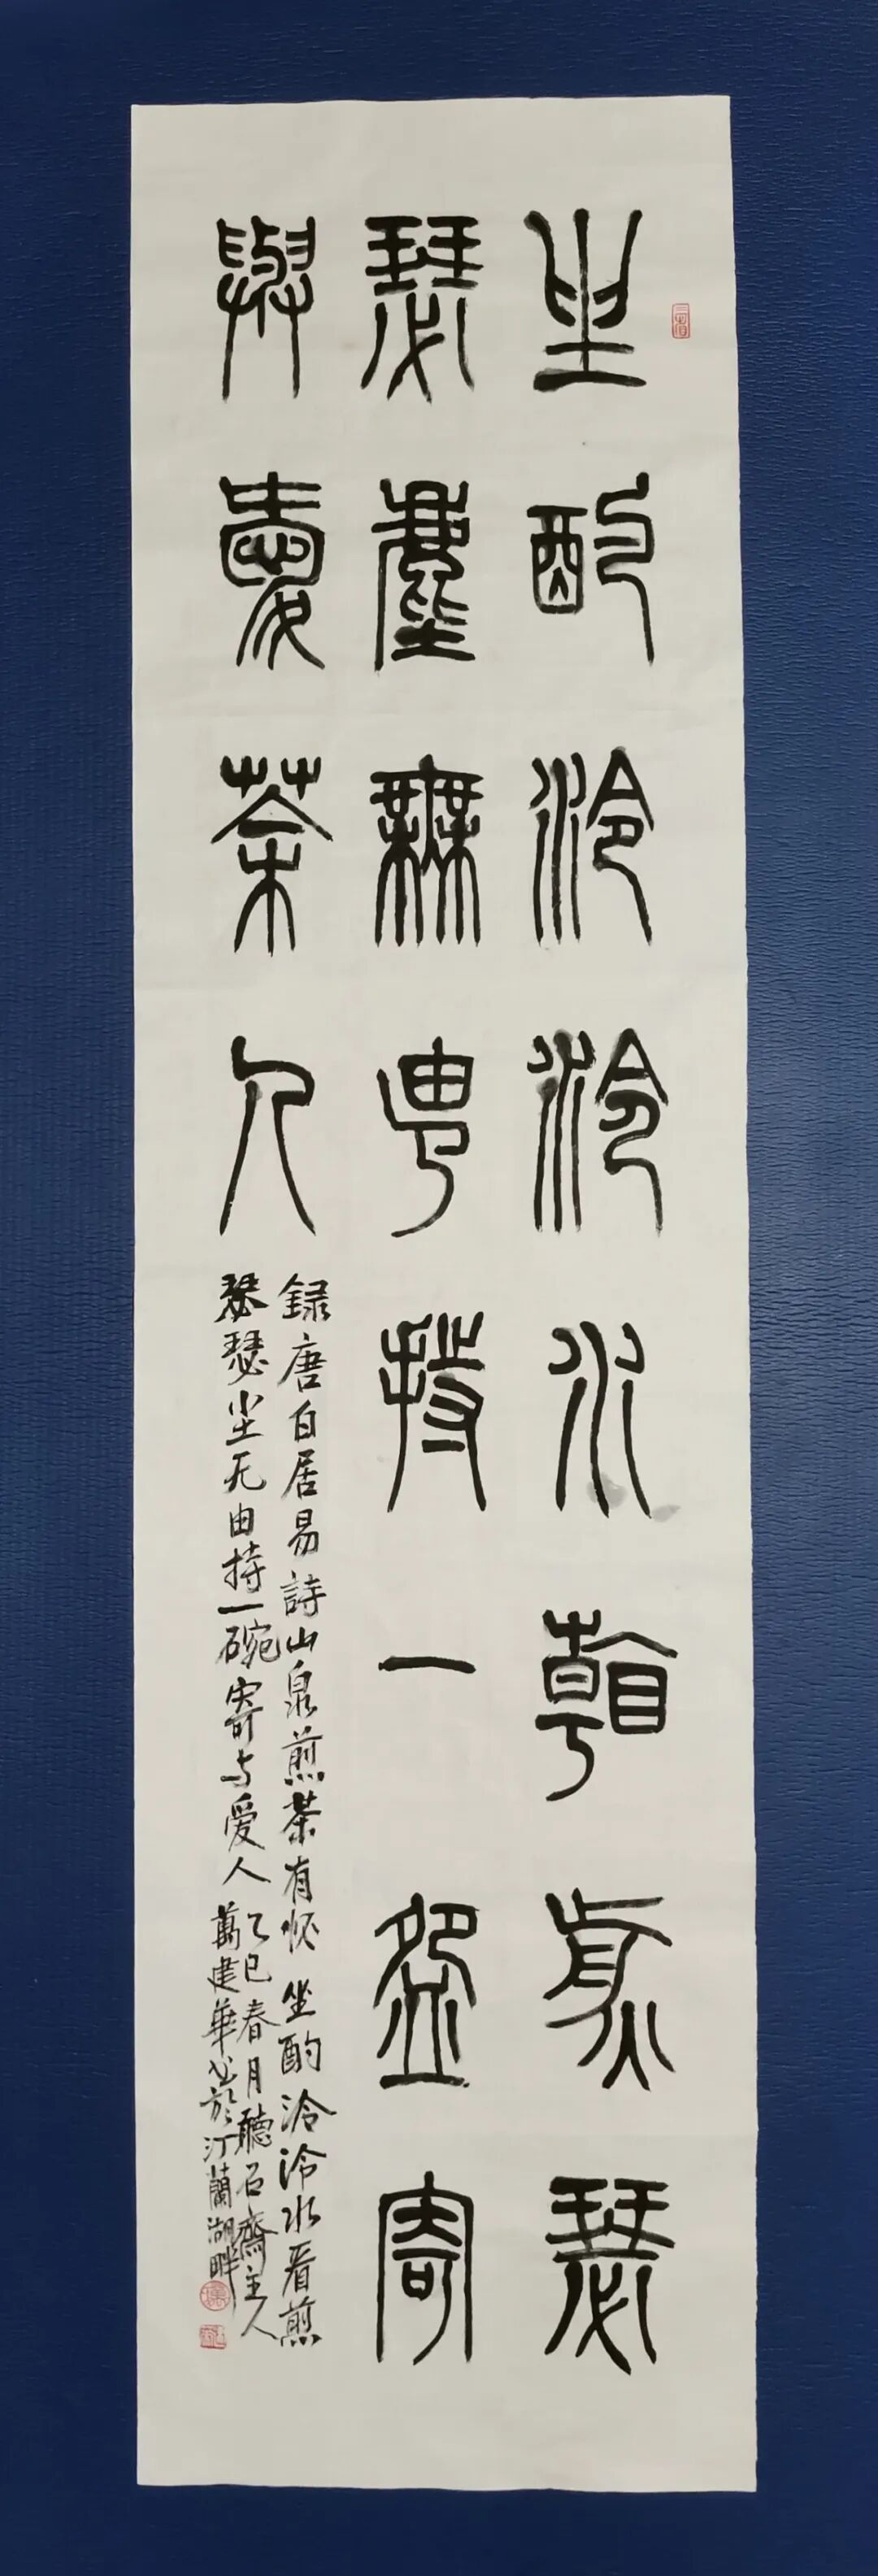 坐酌泠泠水看煎瑟
瑟塵無由持一盌寄
與愛茶人
録唐白居易詩山泉煎茶有怀坐酌泠泠水看煎
瑟瑟尘无由持一碗寄与爱人
乙巳春月聽石齋主人
萬建華书於汀蘭湖畔